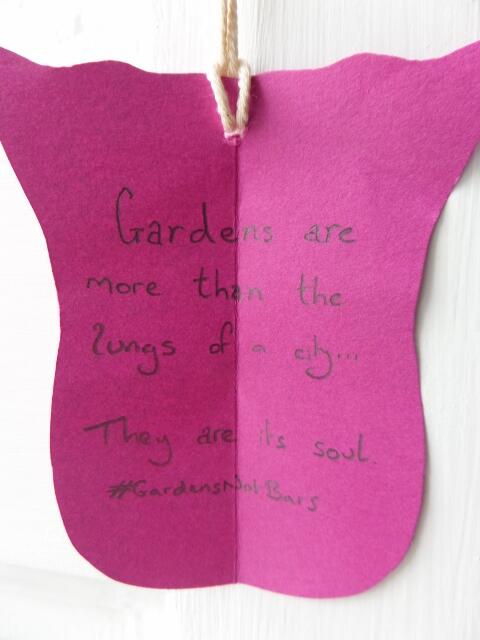 Gardens are
more than the
lungs of a city...
They are its soul.
#GardensNotBars